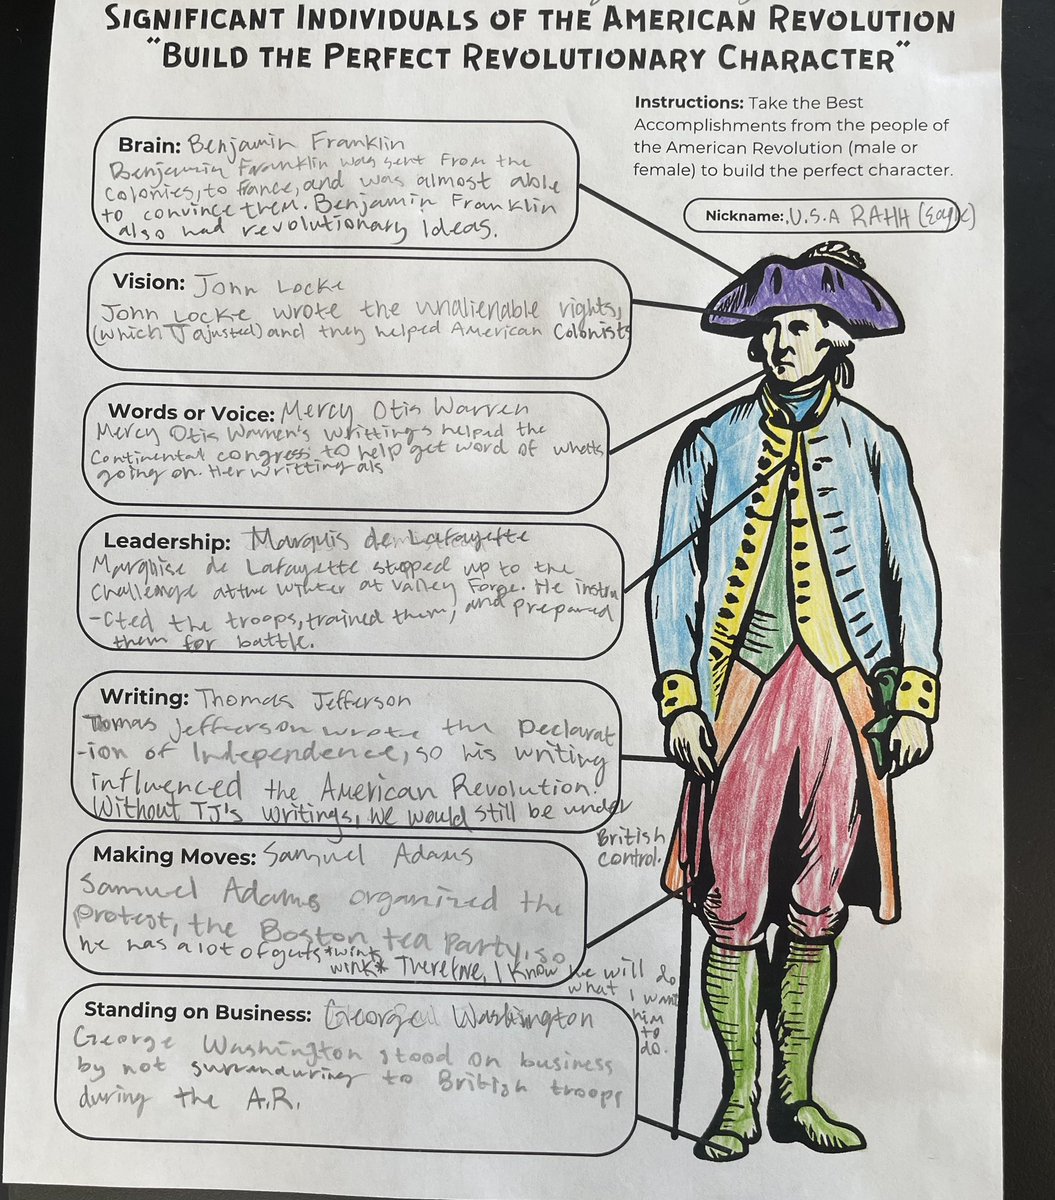 SIGNIFICANT INDIVIDUALS OF THE AMERICAN REVOLUTION
"BUILD THE PERFECT REVOLUTIONARY CHARACTER"
Instructions: Take the Best
Accomplishments from the people of
the American Revolution (male or
female) to build the perfect character.
Nickname: U.S.A RAHH (Eagle)
Brain: Benjamin Franklin
Benjamin Franklin was sent from the
colonies, to france, and was almost able
to convince them. Benjamin Franklin
also had revolutionary Ideas.
Vision: John Locke
John Locke wrote the unalienable rights,
(which TJ ajusted) and they helped American Colonists
Words or Voice: Mercy Otis Warren
Mercy Otis Warren's writtings helped the
Continental congress to help get word of whats
going on. Her writting als
Leadership: Marquis de Lafayette
Marquise de Lafayette stepped up to the
challenge at the winter at Valley Forge. He instru
-cted the troops, trained them, and prepared
them for battle.
Writing: Thomas Jefferson
Tomas Jefferson wrote the Declarat
-ion of Independence, so his writing
influenced the American Revolution.
Without TJ's writings, we would still be under
British
control.
Making Moves: Samuel Adams
Samuel Adams organized the
Protest, the Boston tea Party, so
he has a lot of guts *wink
wink* Therefore, I know he will do
what I want
him
to
do.
Standing on Business: George Washington
George Washington stood on business
by not surranduring to British troops
during the A.R.